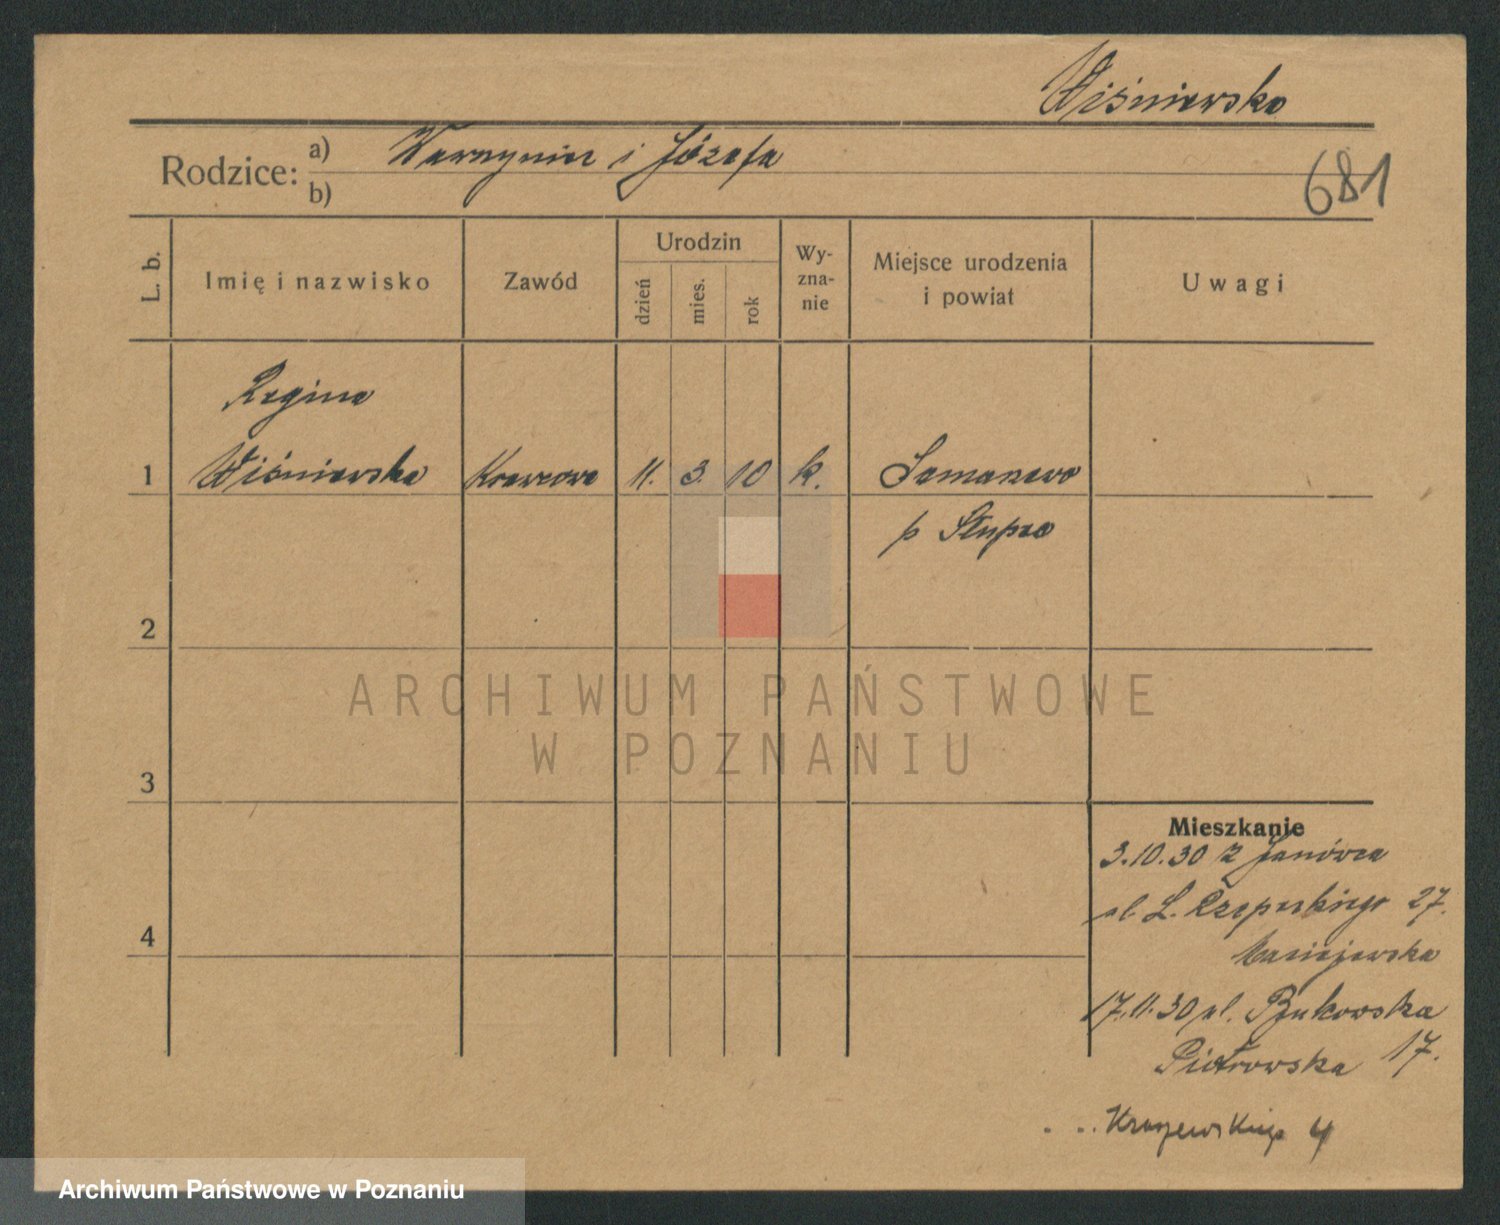 Wiśniewska
Rodzice: a) Wawrzyniec i Józefa
b)
681
L. b.
Imię i nazwisko
Zawód
Urodzin
dzień
mies.
rok
Wy-
zna-
nie
Miejsce urodzenia
i powiat
Uwagi
Regina
1 Wiśniewska Krawcowa 11. 3. 10 k.
p Słupca
2
3
4
ARCHIWUM PAŃSTWOWE
W POZNANIU
Mieszkanie
3.10.30 z Janówca
ul. L. Rzepeckiego 27.
Maciejewska
17.11.30 ul. Bukowska
Piotrowska 17.
Kraszewskiego 4
Archiwum Państwowe w Poznaniu